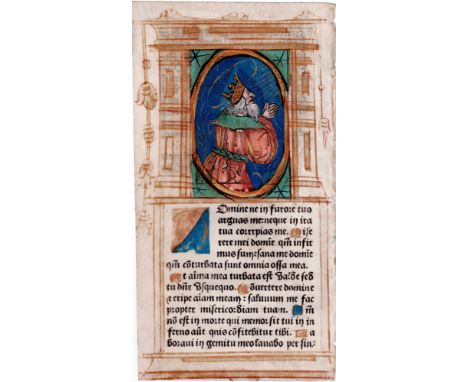 Omine ne in furore tuo
arguas me: neque in ira
tua corripias me. Mise
rere mei domie qm̄ infir
mus sum: sana me domie
qm̄ cōturbata sunt omnia ossa mea.
Et aīma mea turbata est valde sed
tu dn̄e vsquequo. Cōuertere domine
et eripe aīam meam: saluum me fac
propter misericordiam tuam. Qm̄
nō est in morte qui memor sit tui in in
ferno aūt quis cōfitebitur tibi. La
boraui in gemitu meo lauabo per sin⸗